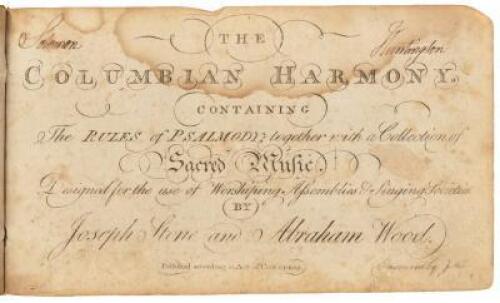 Solomon Huntington
THE
COLUMBIAN HARMONY.
CONTAINING
The RULES of PSALMODY; together with a Collection of
Sacred Music.
Designed for the use of Worshiping Assemblies & Singing Societies
BY
Joseph Stone and Abraham Wood.
Published according to Act of Congress.
Engraved by